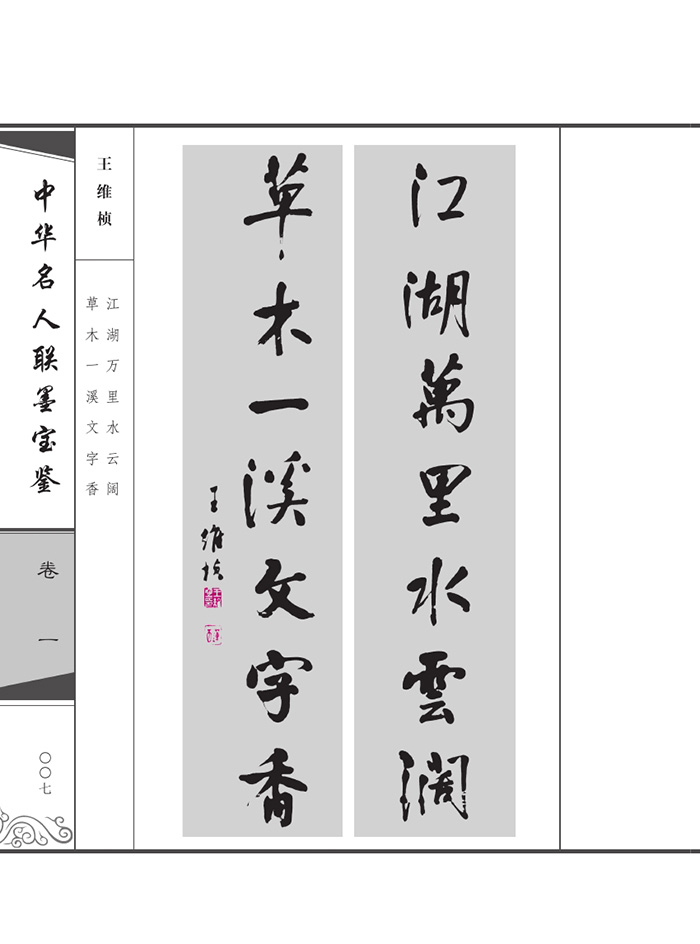 中华名人联墨宝鉴
卷一
〇〇七
王维桢
江湖万里水云阔
草木一溪文字香
江湖萬里水雲濶
草木一溪文字香
王維楨